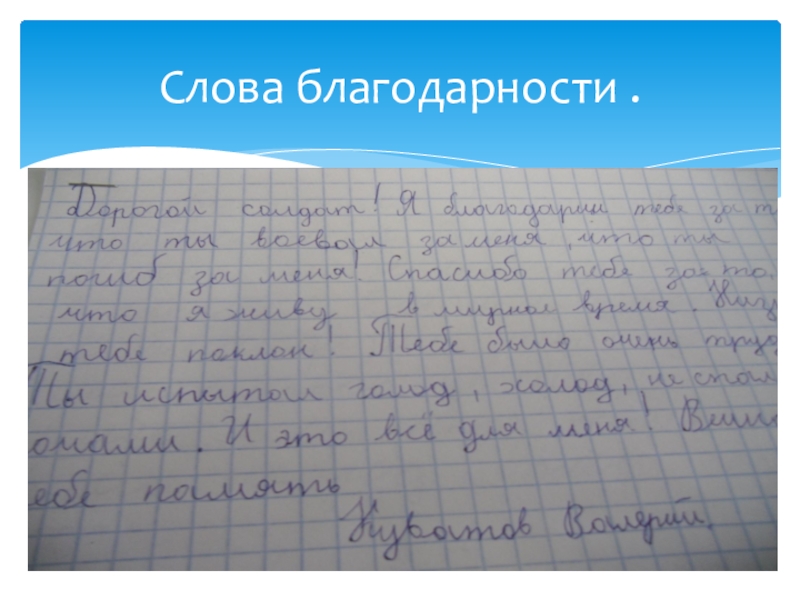 Слова благодарности .
Дорогой солдат! Я благодарю тебя за т
что ты воевал за меня, что ты
погиб за меня! Спасибо тебе за то,
что я живу в мирное время. Низ
тебе поклон! Тебе было очень труд
Ты испытал голод, холод, не спал
очами. И это всё для меня! Вечн
ебе память
Куватов Валерий.